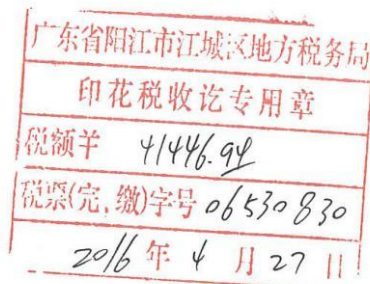 广东省阳江市江城区地方税务局
印花税收讫专用章
税额羊 41446.94
税票(完、缴)字号 06530830
2016 年 4 月 27 日